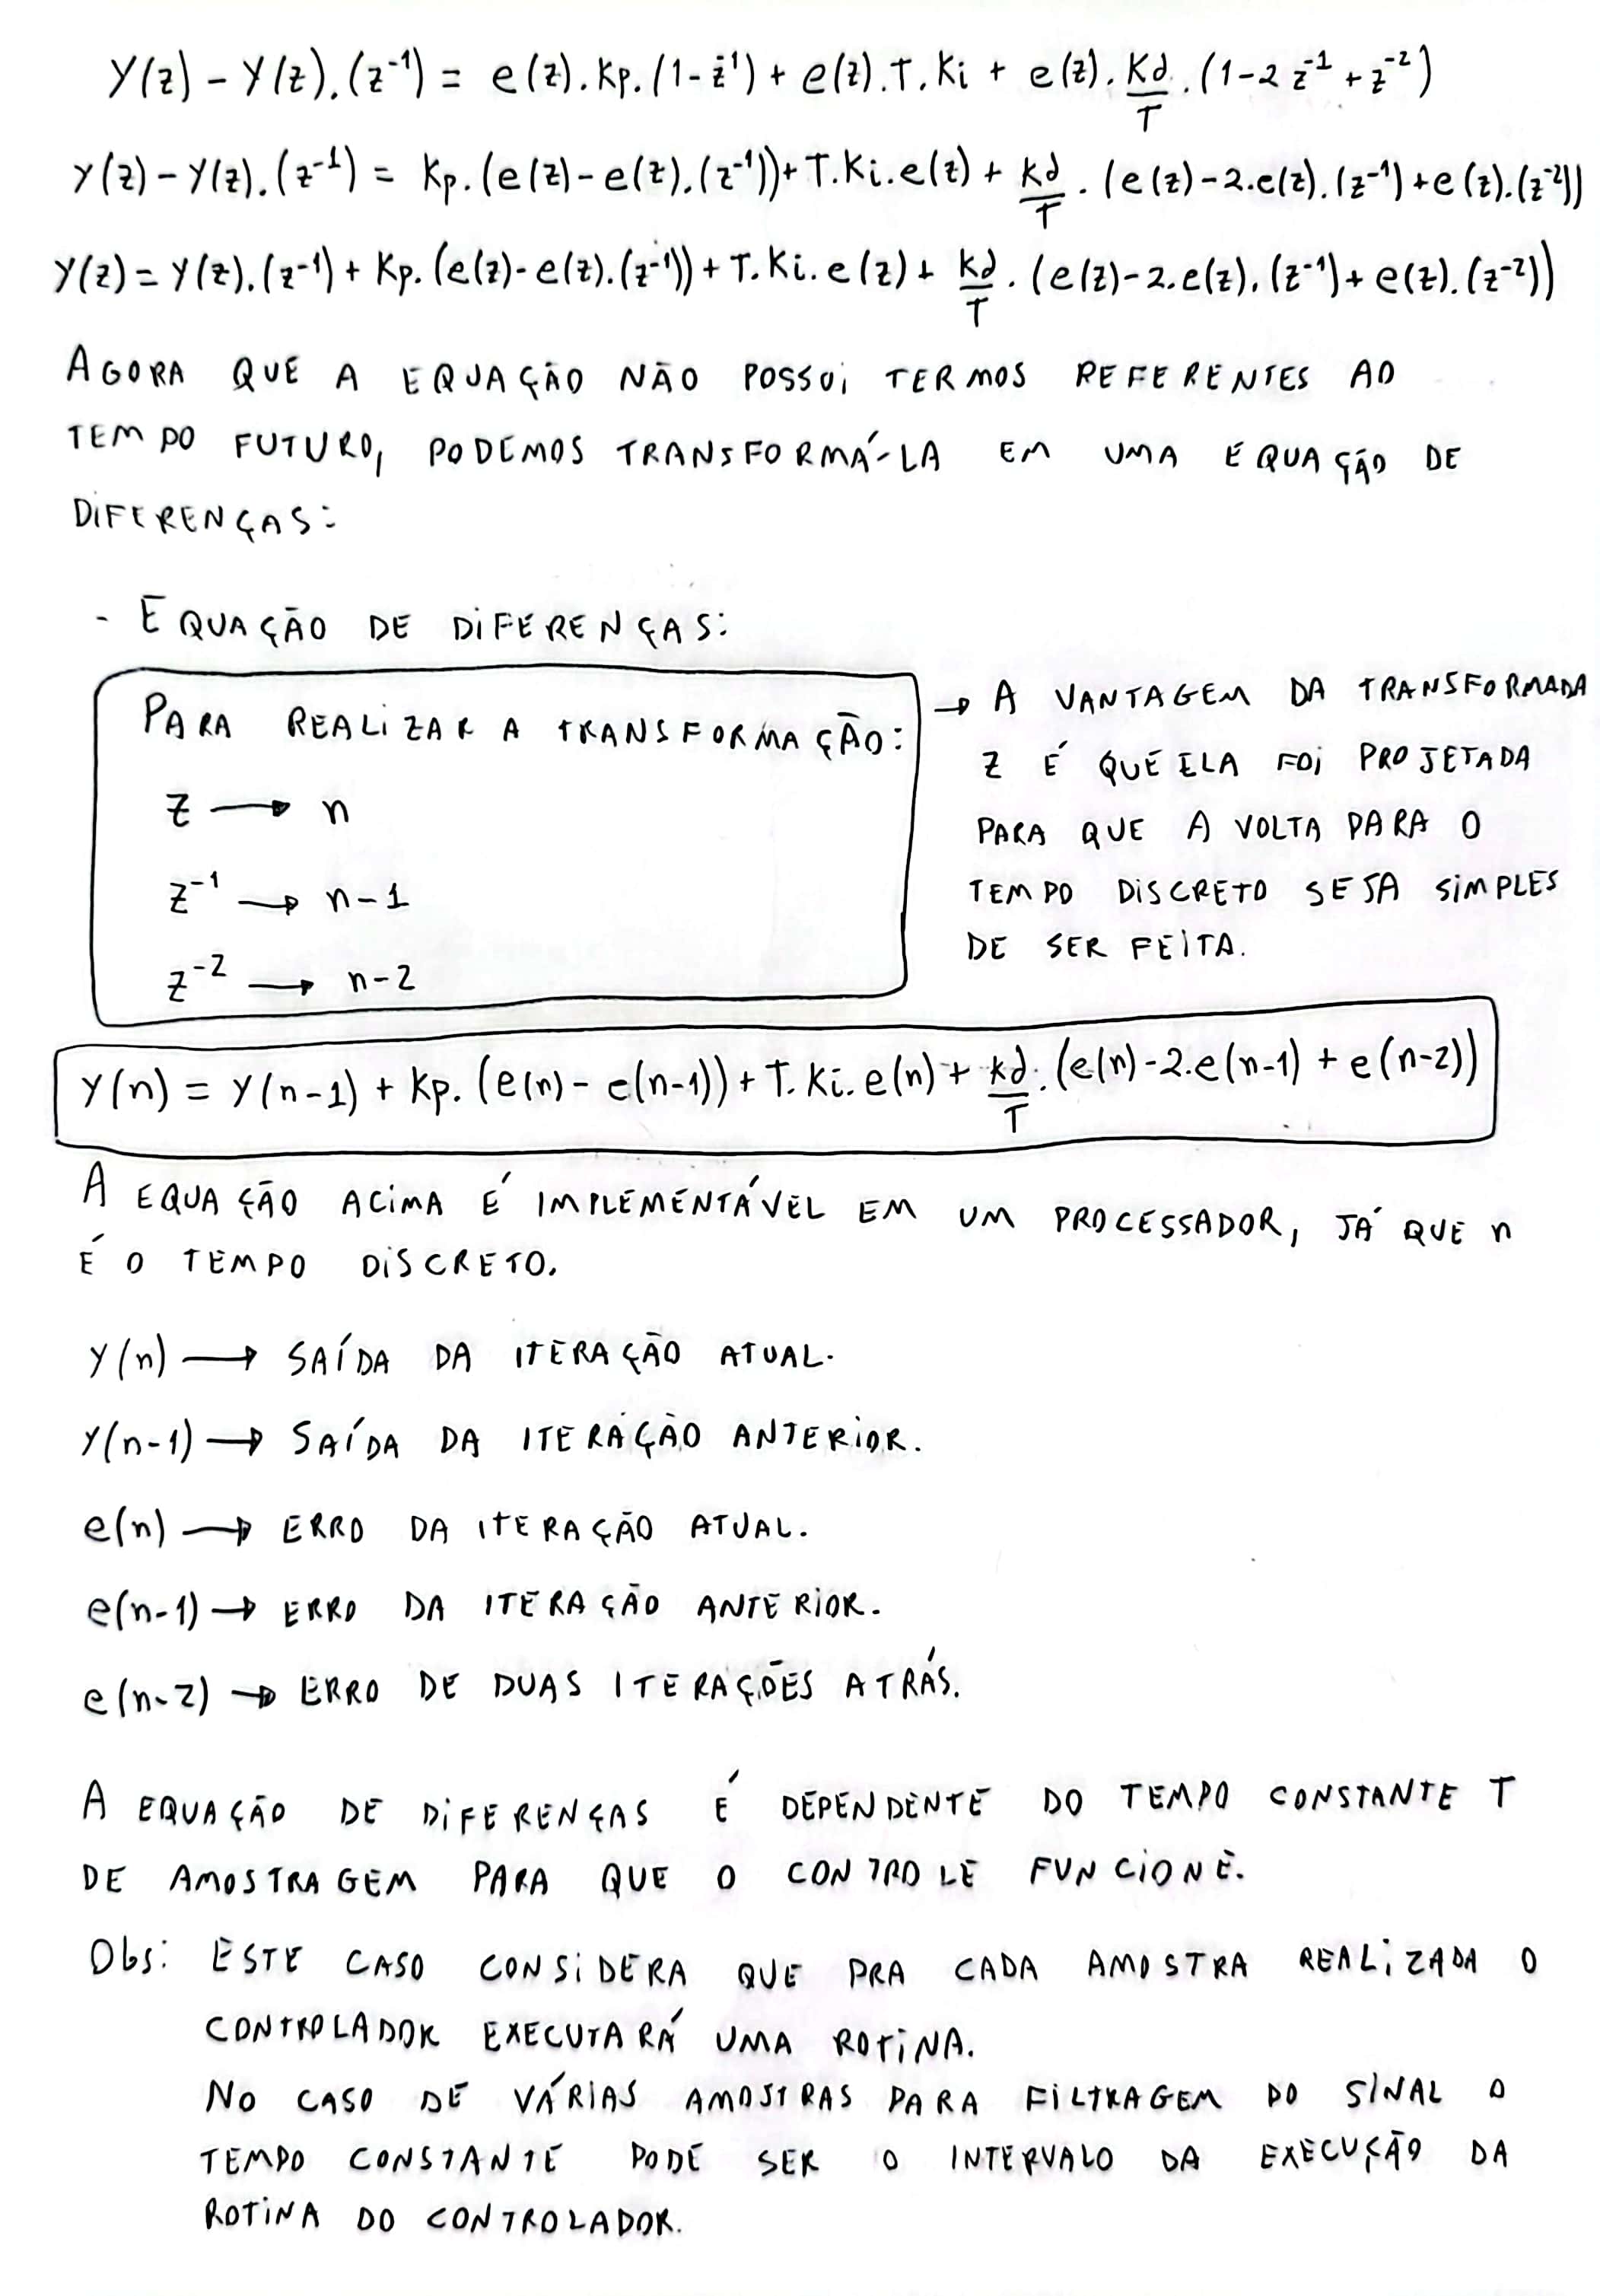 Y(z) - Y(z).(z⁻¹) = e(z).Kp.(1-z⁻¹) + e(z).T.Ki + e(z).Kd/T.(1-2z⁻¹+z⁻²)
Y(z) - Y(z).(z⁻¹) = Kp.(e(z)-e(z).(z⁻¹))+T.Ki.e(z) + Kd/T.(e(z)-2.e(z).(z⁻¹)+e(z).(z⁻²))
Y(z) = Y(z).(z⁻¹) + Kp.(e(z)-e(z).(z⁻¹)) + T.Ki.e(z) + Kd/T.(e(z)-2.e(z).(z⁻¹)+e(z).(z⁻²))
AGORA QUE A EQUAÇÃO NÃO POSSUI TERMOS REFERENTES AO
TEMPO FUTURO, PODEMOS TRANSFORMÁ-LA EM UMA EQUAÇÃO DE
DIFERENÇAS:
- EQUAÇÃO DE DIFERENÇAS:
PARA REALIZAR A TRANSFORMAÇÃO:
z → n
z⁻¹ → n-1
z⁻² → n-2
→ A VANTAGEM DA TRANSFORMADA
Z É QUE ELA FOI PROJETADA
PARA QUE A VOLTA PARA O
TEMPO DISCRETO SEJA SIMPLES
DE SER FEITA.
Y(n) = Y(n-1) + Kp.(e(n) - e(n-1)) + T.Ki.e(n) + Kd/T.(e(n)-2.e(n-1) + e(n-2))
A EQUAÇÃO ACIMA É IMPLEMENTÁVEL EM UM PROCESSADOR, JÁ QUE n
É O TEMPO DISCRETO.
Y(n) → SAÍDA DA ITERAÇÃO ATUAL.
Y(n-1) → SAÍDA DA ITERAÇÃO ANTERIOR.
e(n) → ERRO DA ITERAÇÃO ATUAL.
e(n-1) → ERRO DA ITERAÇÃO ANTERIOR.
e(n-2) → ERRO DE DUAS ITERAÇÕES ATRÁS.
A EQUAÇÃO DE DIFERENÇAS É DEPENDENTE DO TEMPO CONSTANTE T
DE AMOSTRAGEM PARA QUE O CONTROLE FUNCIONE.
Obs: ESTE CASO CONSIDERA QUE PRA CADA AMOSTRA REALIZADA O
CONTROLADOR EXECUTARÁ UMA ROTINA.
NO CASO DE VÁRIAS AMOSTRAS PARA FILTRAGEM DO SINAL O
TEMPO CONSTANTE PODE SER O INTERVALO DA EXECUÇÃO DA
ROTINA DO CONTROLADOR.